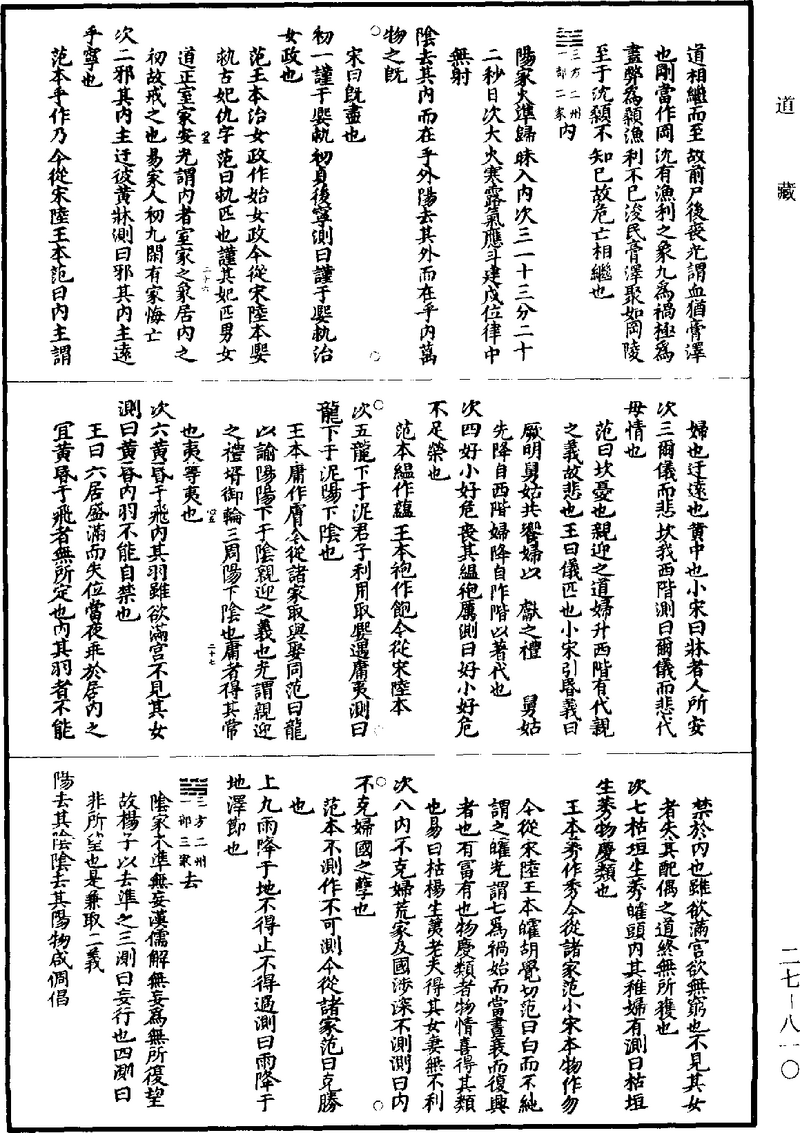 道藏
道相繼而至故前尸後喪光謂血猶膏澤
也剛當作岡沈有漁利之象九爲禍極爲
盡弊爲顙漁利不已浚民膏澤聚如岡陵
至于沈顙不知已故危亡相繼也
三方二州
一部二家
内
陽家火準歸昧入内次三一十三分二十
二秒日次大火寒露氣應斗建戌位律中
無射
陰去其内而在乎外陽去其外而在乎内萬
物之旣
宋曰旣盡也
初一謹于娶執初貞後寧測曰謹于娶執治
女政也
范王本治女政作始女政今從宋陸本娶
執古妃仇字范曰執匹也謹其妃匹男女
道正室家安光謂内者室家之象居内之
初故戒之也易家人初九閑有家悔亡
次二邪其内主迂彼黃牀測曰邪其内主遠
乎寧也
范本乎作乃今從宋陸王本范曰内主謂
婦也迂遠也黃中也小宋曰牀者人所安
次三爾儀而悲坎我西階測曰爾儀而悲代
母情也
范曰坎憂也親迎之道婦升西階有代親
之義故悲也王曰儀匹也小宋引昏義曰
厥明舅姑共饗婦以 獻之禮 舅姑
先降自西階婦降自阼階以著代也
次四好小好危喪其緼袍厲測曰好小好危
不足榮也
范本緼作蘊王本袍作飽今從宋陸本
次五龍下于泥君子利用取娶遇庸夷測曰
龍下于泥陽下陰也
王本庸作膚今從諸家取與娶同范曰龍
以諭陽陽下于陰親迎之義也光謂親迎
之禮壻御輪三周陽下陰也庸者得其常
也夷等夷也
次六黃昏于飛内其羽雖欲滿宮不見其女
測曰黃昏内羽不能自禁也
王曰六居盛滿而失位當夜乖於居内之
宜黃昏于飛者無所定也内其羽者不能
禁於内也雖欲滿宮欲無窮也不見其女
者失其配偶之道終無所獲也
次七枯垣生莠皬頭内其稚婦有測曰枯垣
生莠物慶類也
王本莠作秀今從諸家范小宋本物作勿
今從宋陸王本皬胡覺切范曰白而不純
謂之皬光謂七爲禍始而當晝義而復興
者也有冨有也物慶類者物情喜得其類
也易曰枯楊生荑老夫得其女妻無不利
次八内不克婦荒家及國涉深不測測曰内
不克婦國之孽也
范本不測作不可測今從諸家范曰克勝
也
上九雨降于地不得止不得過測曰雨降于
地澤節也
三方二州
一部三家
去
陰家木準無妄漢儒解無妄爲無所復望
故楊子以去準之三測曰妄行也四測曰
非所望也是兼取二義
陽去其陰陰去其陽物咸倜倡
二十六
二十七
二七-八一〇